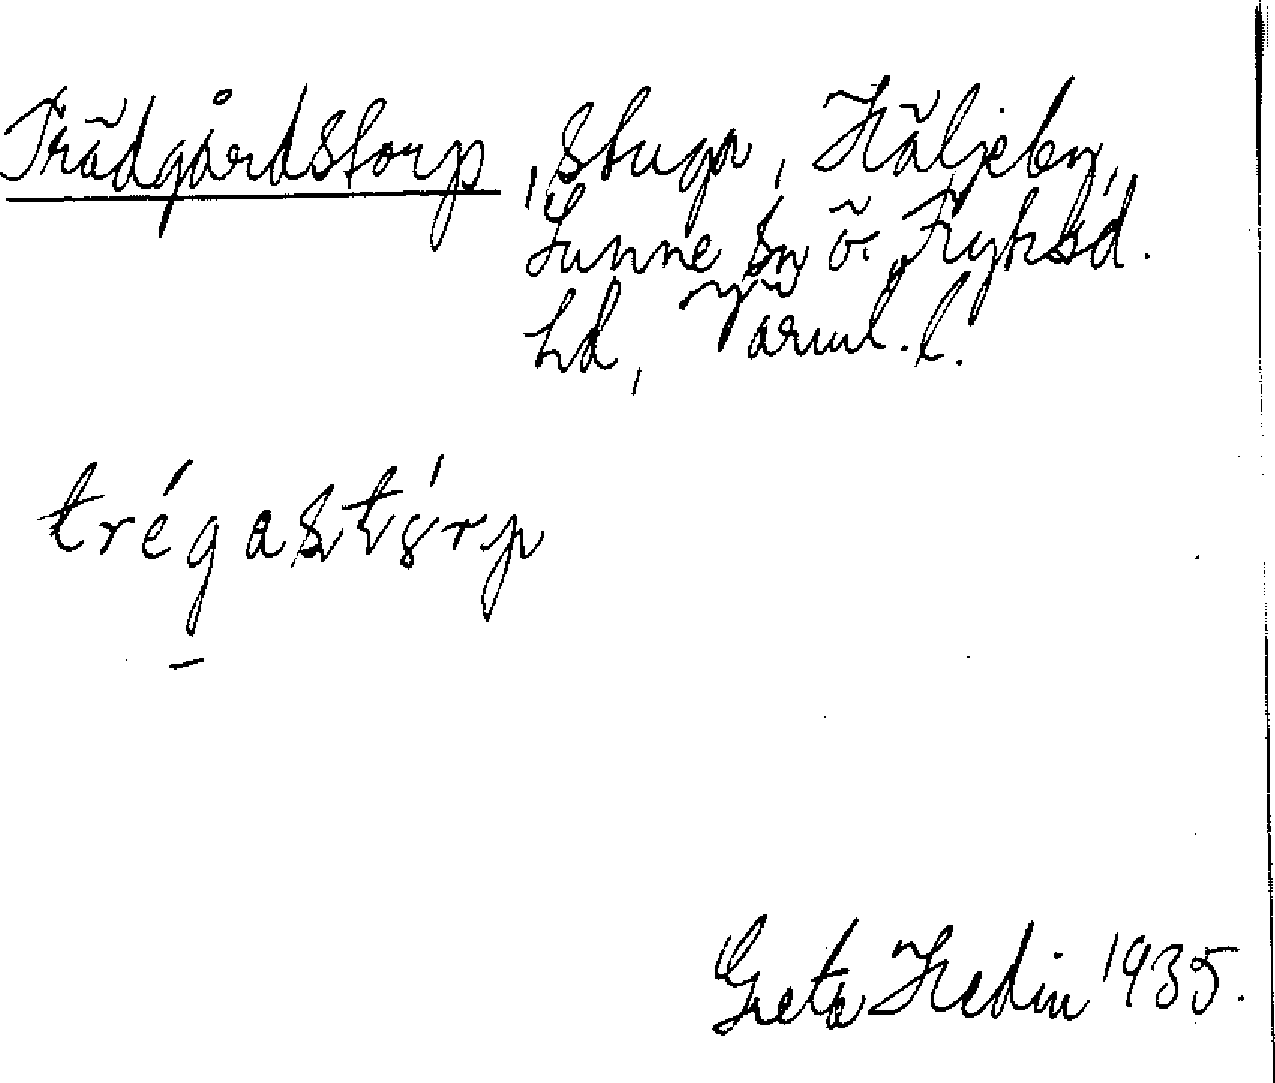 Trädgårdstorp, stuga, Häljeby,
Sunne sn ö. Fryksd.
hd, Värml. l.
trégastórp
Greta Hedin 1935.